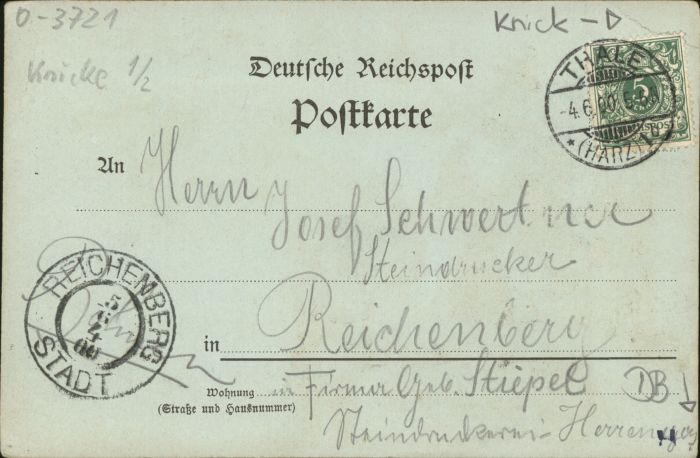 0-3721
Knick
Knicke 1/2
Deutsche Reichspost
Postkarte
THALE
-4.6.00.5-
*(HARZ)*
5
An Herrn
Josef Schwertner
Steindrucker
in Reichenberg
REICHENBERG
STADT
5
6
00
Wohnung
(Straße und Hausnummer)
in Firma Geb. Stiepel
DB
Steindruckerei - Herrengasse